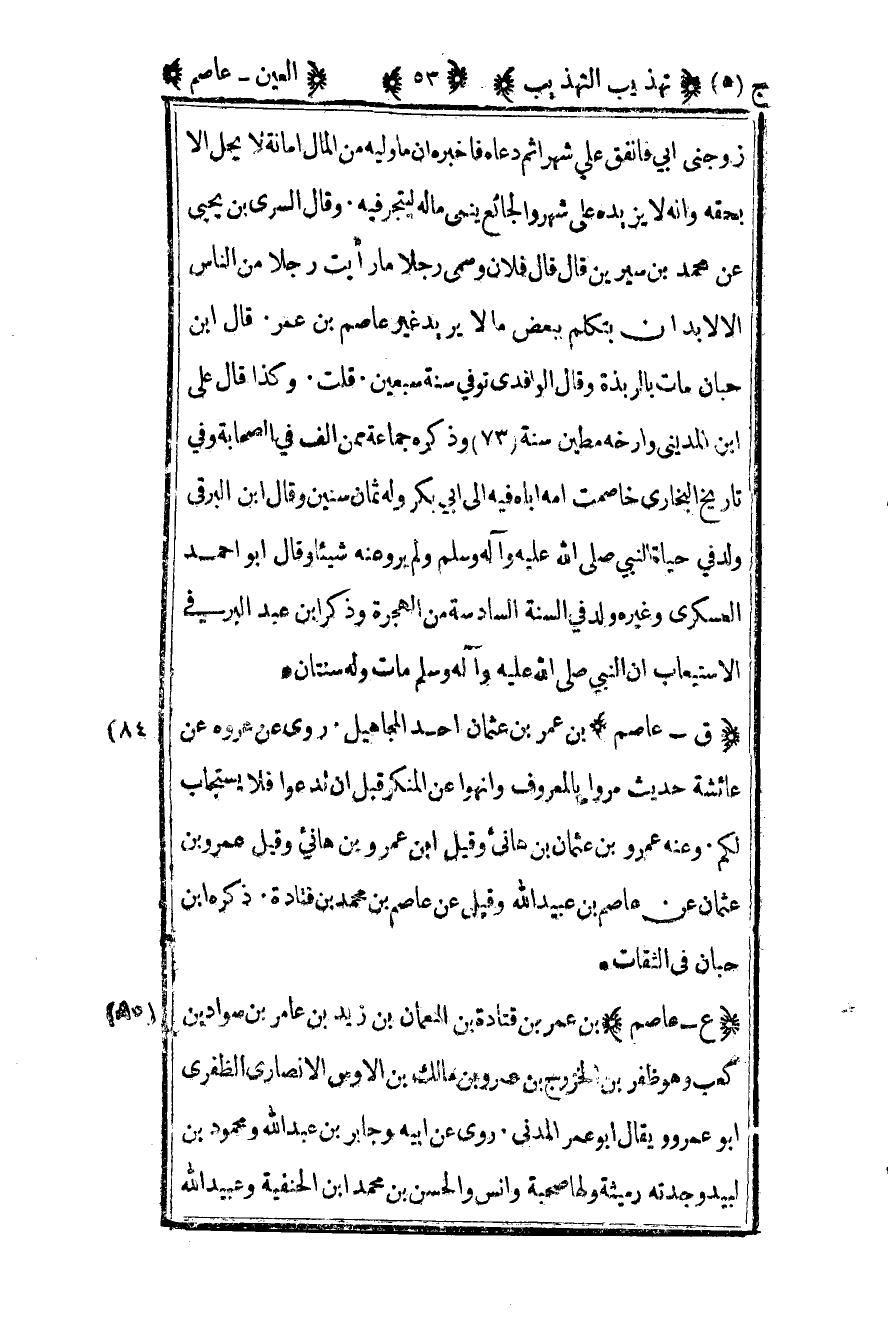 ج (٥) ﴿ تهذيب التهذيب ﴾ ﴿ ٥٣ ﴾ ﴿ العين - عاصم ﴾
زوجنى ابي فانفق علي شهرا ثم دعاه فاخبره ان ما وليه من المال امانة لا يحل الا
بحقه وانه لا يزيده على شهر والجائع ينمى ماله ليتجر فيه · وقال السرى بن يحيى
عن محمد بن سيرين قال قال فلان وسمى رجلا ما رأيت رجلا من الناس
الا لابد ان يتكلم ببعض ما لا يريد غير عاصم بن عمر · قال ابن
حبان مات بالربذة وقال الواقدى توفي سنة سبعين · قلت · وكذا قال على
ابن المدينى وارخه مطين سنة (٧٣) وذكره جماعة ممن الف في الصحابة وفي
تاريخ البخارى خاصمت امه اباه فيه الى ابي بكر وله ثمان سنين وقال ابن البرقى
ولد في حياة النبي صلى الله عليه وآله وسلم ولم يرو عنه شيئا وقال ابو احمد
العسكرى وغيره ولد في السنة السادسة من الهجرة وذكر ابن عبد البر في
الاستيعاب ان النبي صلى الله عليه وآله وسلم مات وله سنتان •
﴿ ق - عاصم ﴾ بن عمر بن عثمان احد المجاهيل · روى عن عروه عن (٨٤
عائشة حديث مروا بالمعروف وانهوا عن المنكر قبل ان تدعوا فلا يستجاب
لكم · وعنه عمرو بن عثمان بن هانئ وقيل ابن عمرو بن هانئ وقيل عمرو بن
عثمان عن عاصم بن عبيد الله وقيل عن عاصم بن محمد بن قتادة · ذكره ابن
حبان فى الثقات •
﴿ ع - عاصم ﴾ بن عمر بن قتادة بن النعمان بن زيد بن عامر بن سواد بن (٨٥)
كعب وهو ظفر بن الخزرج بن عمرو بن مالك بن الاوس الانصارى الظفرى
ابو عمرو و يقال ابو عمر المدنى · روى عن ابيه وجابر بن عبد الله ومحمود بن
لبيد وجدته رميثة ولها صحبة وانس والحسن بن محمد ابن الحنفية وعبيد الله